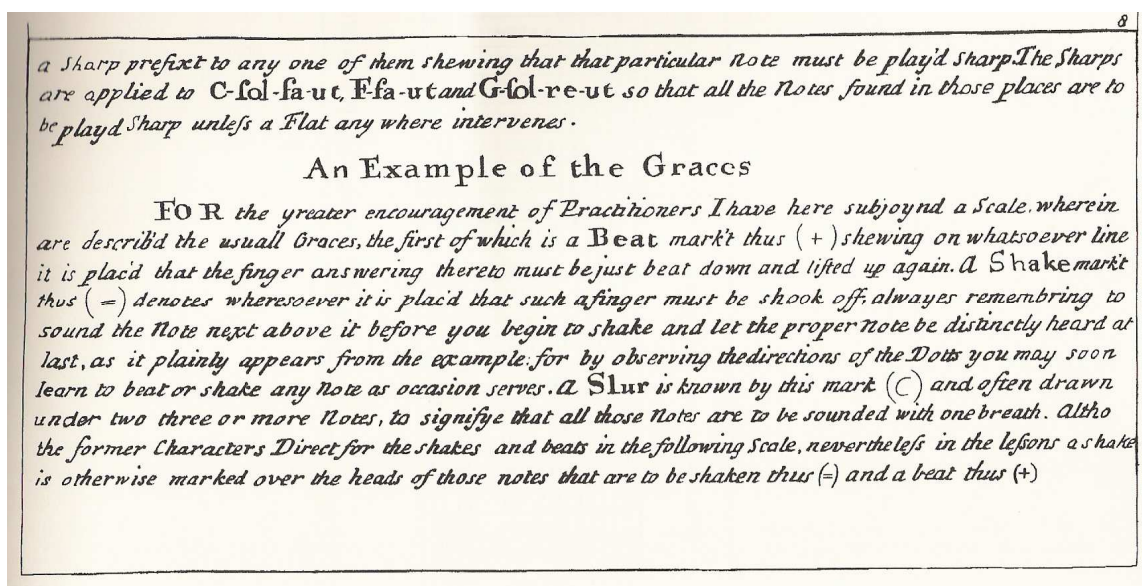 8
a Sharp prefixt to any one of them shewing that that particular Note must be play'd Sharp. The Sharps
are applied to C-ſol-fa-ut, F-fa-ut and G-ſol-re-ut so that all the Notes found in those places are to
be playd Sharp unleſs a Flat any where intervenes.
An Example of the Graces
FOR the greater encouragement of Practitioners I have here subjoynd a Scale, wherein
are describ'd the usuall Graces, the first of which is a Beat mark't thus (+) shewing on whatsoever line
it is plac'd that the finger answering thereto must be just beat down and lifted up again. A Shake mark't
thus (=) denotes wheresoever it is plac'd that such a finger must be shook off, alwayes remembring to
sound the Note next above it before you begin to shake and let the proper note be distinctly heard at
last, as it plainly appears from the example: for by observing the directions of the Dotts you may soon
learn to beat or shake any Note as occasion serves. A Slur is known by this mark (C) and often drawn
under two three or more Notes, to signifye that all those Notes are to be sounded with one breath. Altho
the former Characters Direct for the shakes and beats in the following Scale, nevertheleſs in the leſsons a shake
is otherwise marked over the heads of those notes that are to be shaken thus (=) and a beat thus (+)